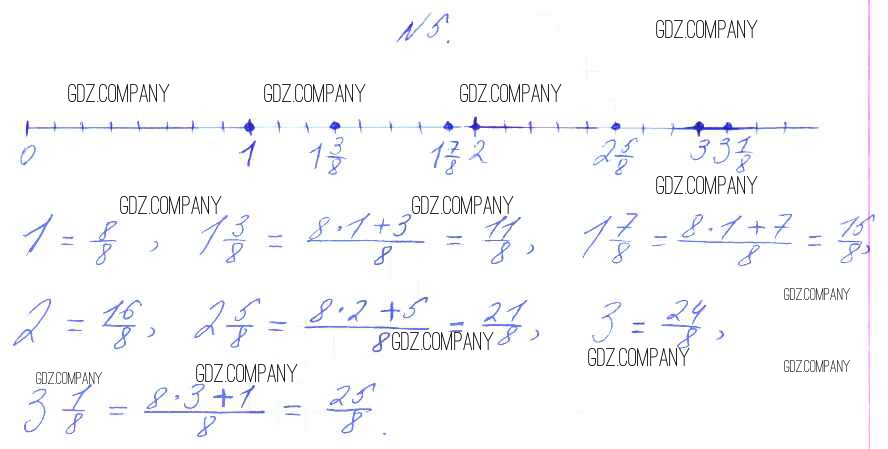 N 5.
GDZ.COMPANY
GDZ.COMPANY GDZ.COMPANY GDZ.COMPANY
0 1 1 3/8 1 7/8 2 2 5/8 3 3 1/8
GDZ.COMPANY
GDZ.COMPANY GDZ.COMPANY
1 = 8/8, 1 3/8 = (8·1+3)/8 = 11/8, 1 7/8 = (8·1+7)/8 = 15/8,
GDZ.COMPANY
2 = 16/8, 2 5/8 = (8·2+5)/8 = 21/8, 3 = 24/8,
GDZ.COMPANY GDZ.COMPANY
GDZ.COMPANY GDZ.COMPANY GDZ.COMPANY
3 1/8 = (8·3+1)/8 = 25/8.